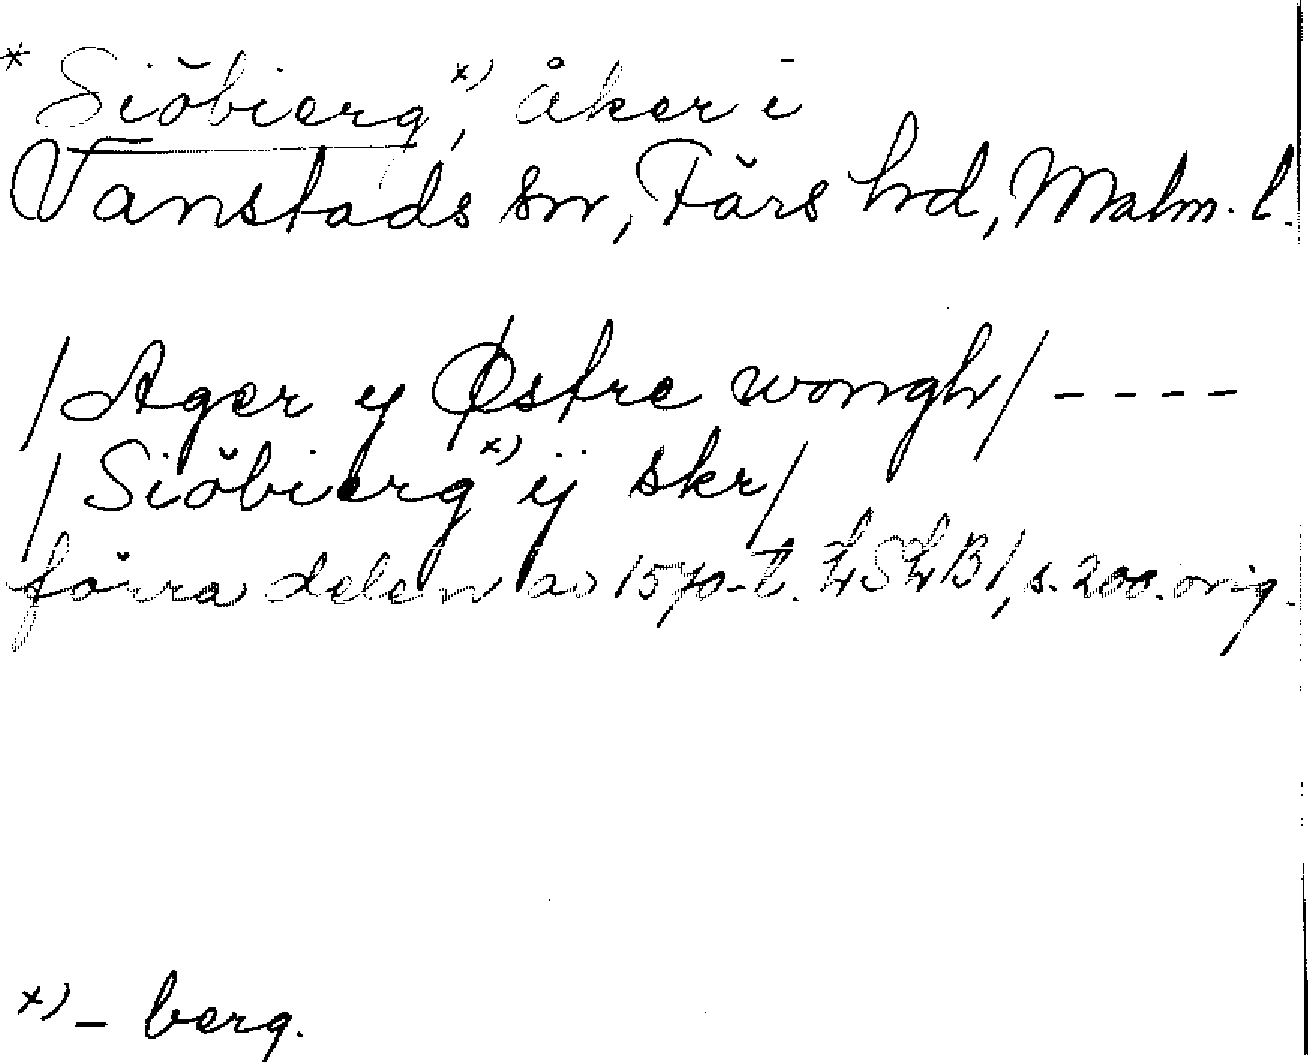 * Siöbierg x), åker i
Vanstads sn, Färs hd, Malm. l.
/Ager y Østre wongh/ ----
/Siöbierg x) ij skr/
förra delen av 1570-t. LSLB 1, s. 200. orig.
x) – berg.